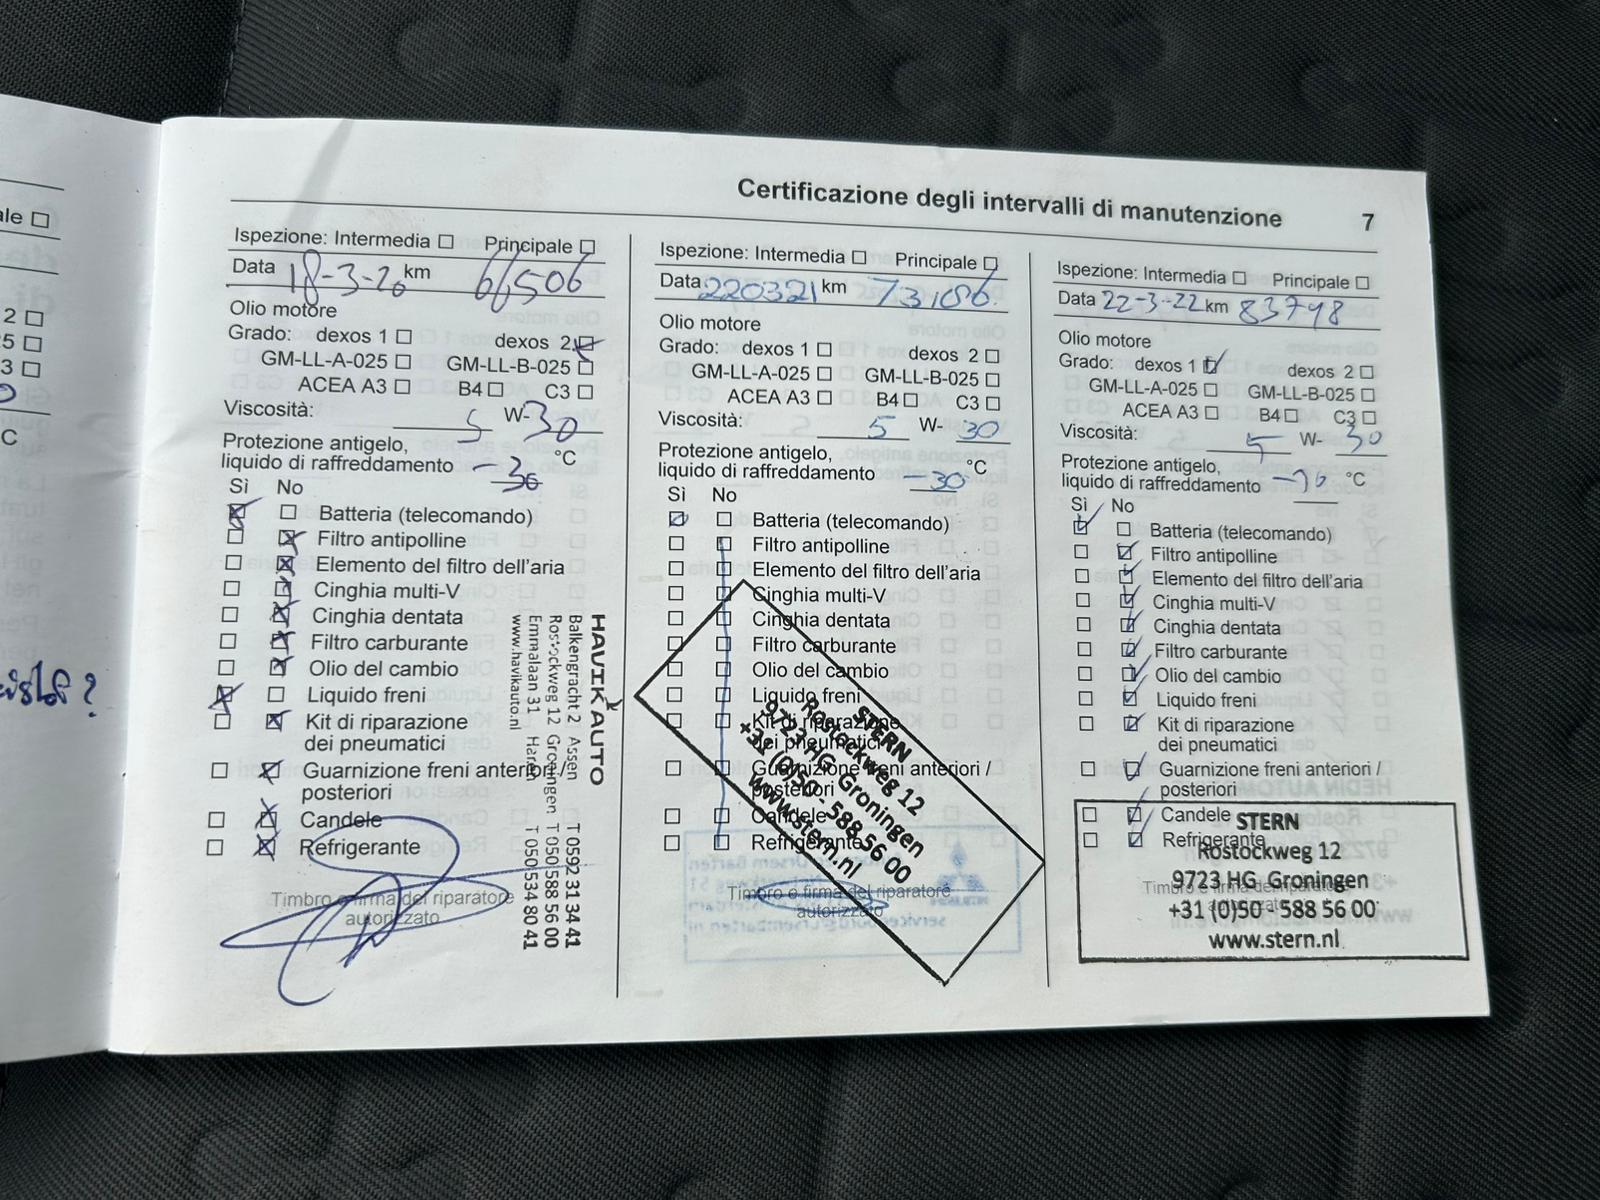 ale
2
5
3
C
Certificazione degli intervalli di manutenzione 7
Ispezione: Intermedia Principale
Data 18-3-20 km 66506
Olio motore
Grado: dexos 1 dexos 2
GM-LL-A-025 GM-LL-B-025
ACEA A3 B4 C3
Viscosità: 5 W-30
Protezione antigelo,
liquido di raffreddamento -30 °C
Sì No
Batteria (telecomando)
Filtro antipolline
Elemento del filtro dell'aria
Cinghia multi-V
Cinghia dentata
Filtro carburante
Olio del cambio
Liquido freni
Kit di riparazione
dei pneumatici
Guarnizione freni anteriori /
posteriori
Candele
Refrigerante
Timbro e firma del riparatore
autorizzato
HAVIK AUTO
Balkengracht 2 Assen T 0592 31 34 41
Rostockweg 12 Groningen T 050 588 56 00
Emmalaan 31 Haren T 050 534 80 41
www.havikauto.nl
Ispezione: Intermedia Principale
Data 220321 km 73,186
Olio motore
Grado: dexos 1 dexos 2
GM-LL-A-025 GM-LL-B-025
ACEA A3 B4 C3
Viscosità: 5 W- 30
Protezione antigelo,
liquido di raffreddamento -30 °C
Sì No
Batteria (telecomando)
Filtro antipolline
Elemento del filtro dell'aria
Cinghia multi-V
Cinghia dentata
Filtro carburante
Olio del cambio
Liquido freni
Kit di riparazione
dei pneumatici
Guarnizione freni anteriori /
posteriori
Candele
Refrigerante
Timbro e firma del riparatore
autorizzato
STERN
Rostockweg 12
9723 HG Groningen
+31 (0)50 - 588 56 00
www.stern.nl
Ispezione: Intermedia Principale
Data 22-3-22 km 83798
Olio motore
Grado: dexos 1 dexos 2
GM-LL-A-025 GM-LL-B-025
ACEA A3 B4 C3
Viscosità: 5 W- 30
Protezione antigelo,
liquido di raffreddamento °C
Sì No
Batteria (telecomando)
Filtro antipolline
Elemento del filtro dell'aria
Cinghia multi-V
Cinghia dentata
Filtro carburante
Olio del cambio
Liquido freni
Kit di riparazione
dei pneumatici
Guarnizione freni anteriori /
posteriori
Candele
Refrigerante
Timbro e firma del riparatore
autorizzato
STERN
Rostockweg 12
9723 HG Groningen
+31 (0)50 - 588 56 00
www.stern.nl